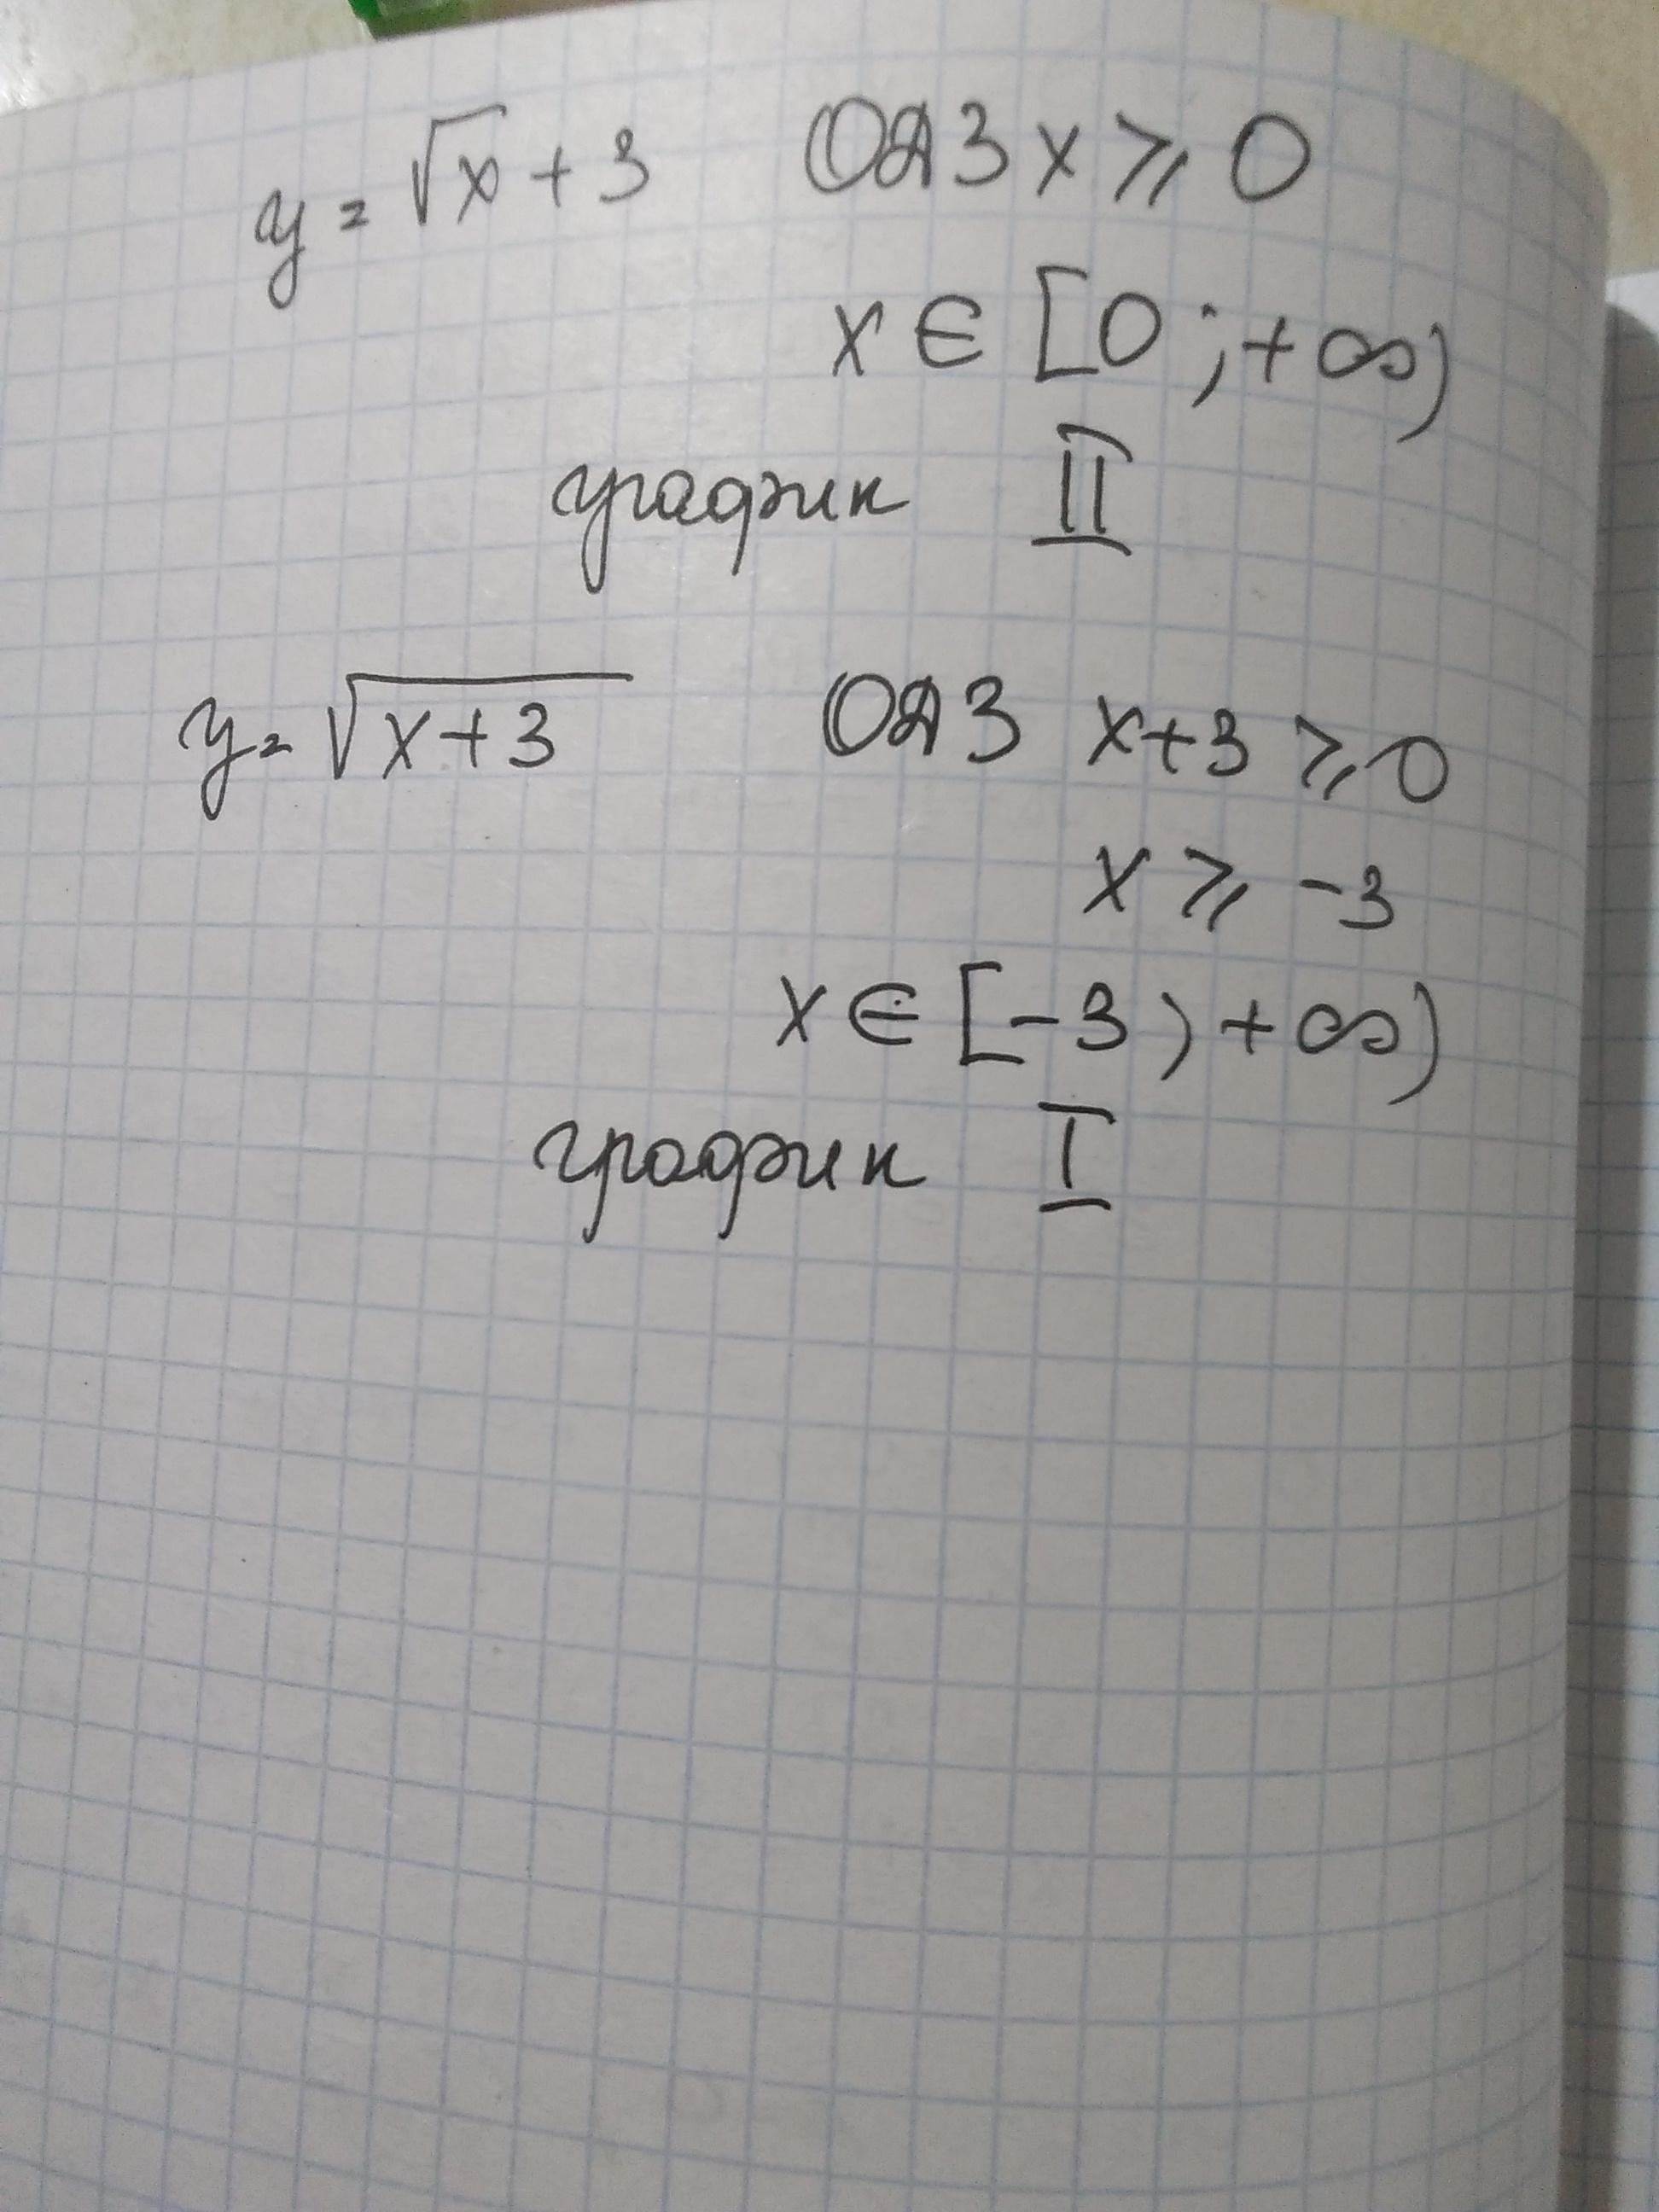 y = √x + 3 ОДЗ x ⩾ 0
x ∈ [0 ; + ∞)
график II
y = √(x+3) ОДЗ x+3 ⩾ 0
x ⩾ -3
x ∈ [-3 ; + ∞)
график I